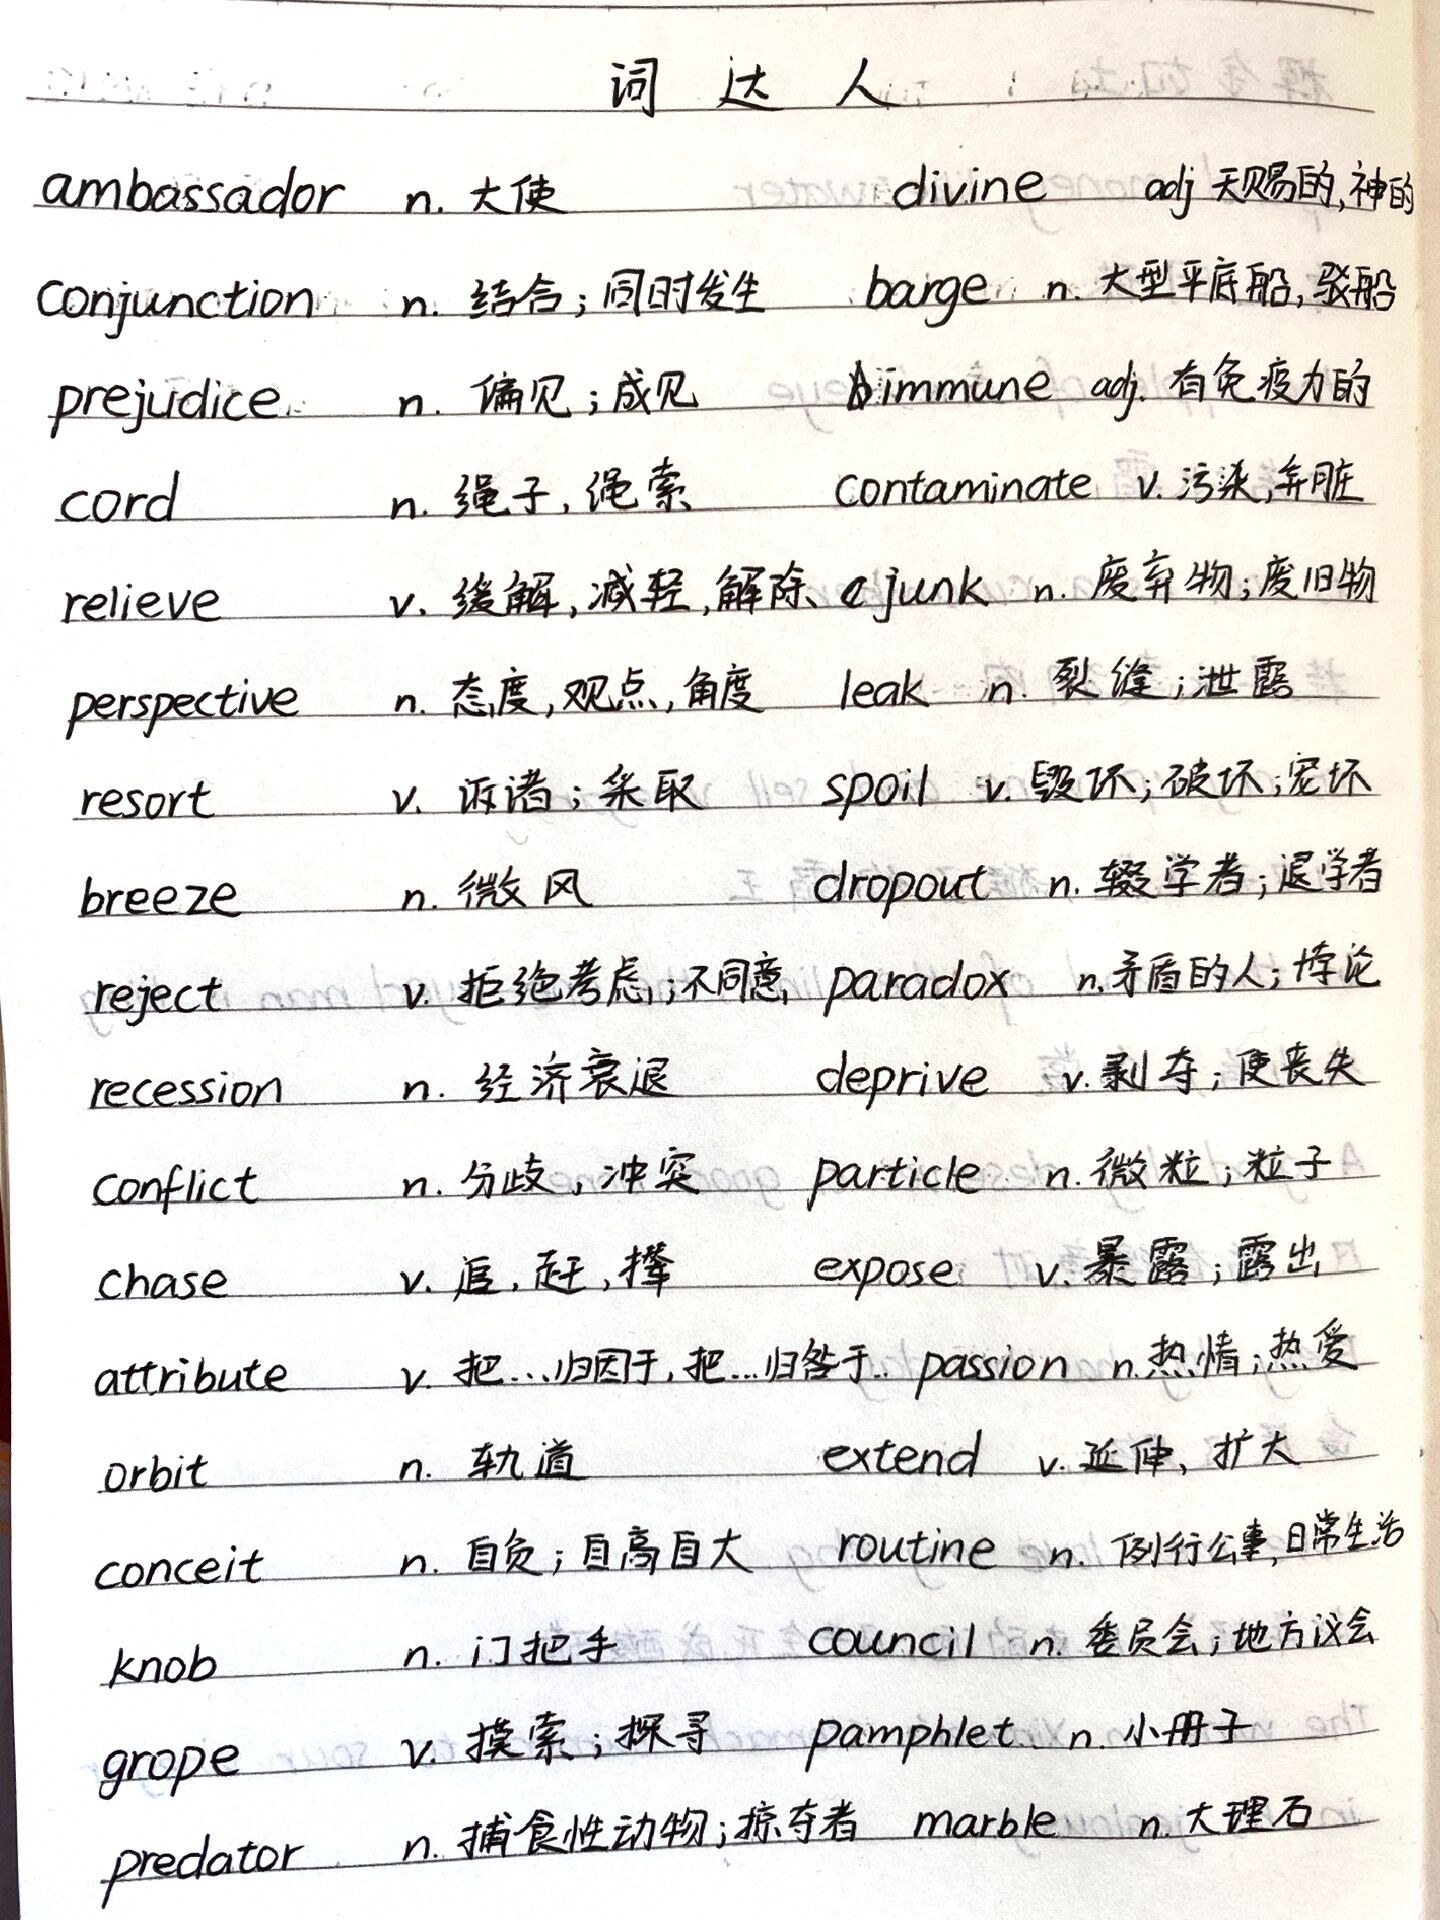 词达人
ambassador n. 大使 divine adj 天赐的,神的
conjunction n. 结合;同时发生 barge n. 大型平底船,驳船
prejudice n. 偏见;成见 immune adj. 有免疫力的
cord n. 绳子,绳索 contaminate v. 污染,弄脏
relieve v. 缓解,减轻,解除 junk n. 废弃物;废旧物
perspective n. 态度,观点,角度 leak n. 裂缝;泄露
resort v. 诉诸;采取 spoil v. 毁坏;破坏;宠坏
breeze n. 微风 dropout n. 辍学者;退学者
reject v. 拒绝考虑;不同意 paradox n. 矛盾的人;悖论
recession n. 经济衰退 deprive v. 剥夺;使丧失
conflict n. 分歧,冲突 particle n. 微粒;粒子
chase v. 追,赶,撵 expose v. 暴露;露出
attribute v. 把...归因于,把...归咎于.. passion n. 热情;热爱
orbit n. 轨道 extend v. 延伸,扩大
conceit n. 自负;自高自大 routine n. 例行公事,日常生活
knob n. 门把手 council n. 委员会;地方议会
grope v. 摸索;探寻 pamphlet n. 小册子
predator n. 捕食性动物;掠夺者 marble n. 大理石